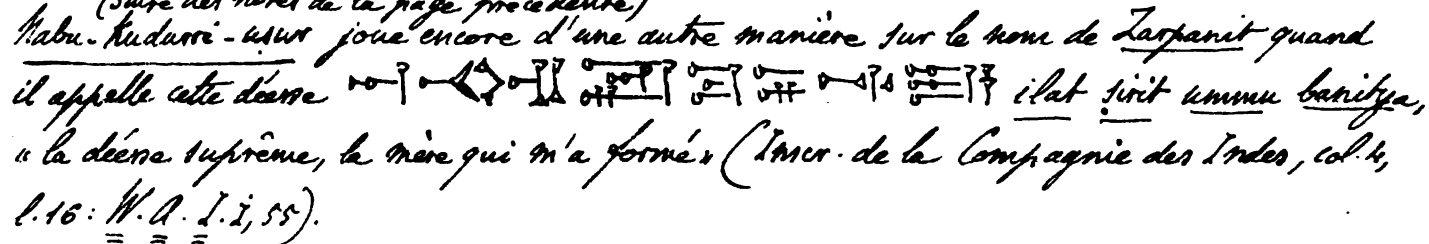 (Suite des notes de la page précédente)
Nabu-Kudurri-uṣur joue encore d'une autre manière sur le nom de Zarpanit quand
il appelle cette déesse ilat ṣirit ummu banitya,
« la déesse suprême, la mère qui m'a formé » (Inscr. de la Compagnie des Indes, col. 4,
l. 16 : W. A. I. I, 55).